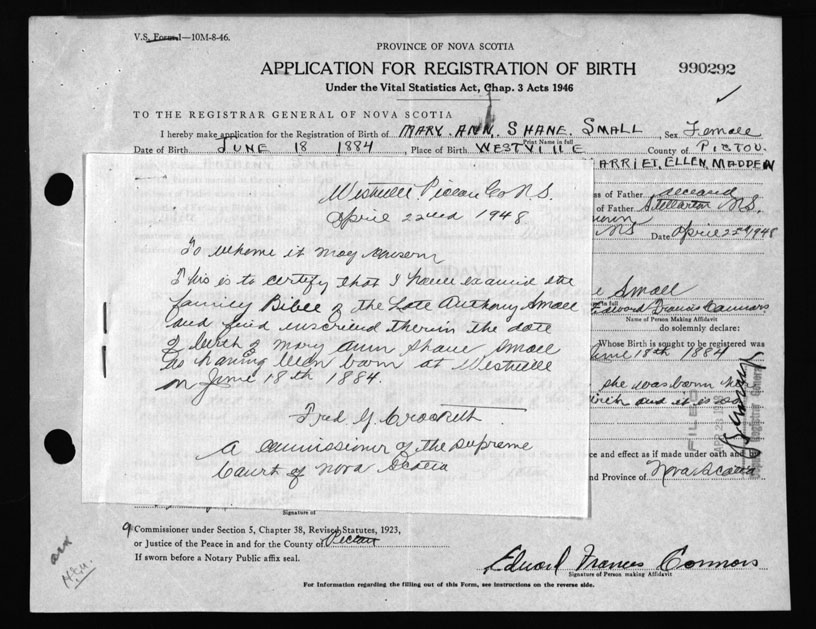 V.S. Form 1—10M-8-46.
PROVINCE OF NOVA SCOTIA
APPLICATION FOR REGISTRATION OF BIRTH
990292
Under the Vital Statistics Act, Chap. 3 Acts 1946
TO THE REGISTRAR GENERAL OF NOVA SCOTIA
I hereby make application for the Registration of Birth of MARY. ANN. SHANE. SMALL, Sex Female
Print Name in full
Date of Birth JUNE 18 1884, Place of Birth WESTVILLE County of PICTOU.
HARRIET, ELLEN, MADDEN
ss of Father deceased
of Father Stellarton N.S.
NS Date April 22nd 1948
Westville Pictou Co N.S.
April 22nd 1948
To whome it may concern
This is to certify that I have examined the
family Bible of the Late Anthony Small
and find inscribed therein the date
of birth of Mary Ann Shane Small
as having been born at Westville
on June 18th 1884.
Fred G. Crockett
A commissioner of the Supreme
Court of Nova Scotia
e Small
in full
Edward Francis Connors
Name of Person Making Affidavit
do solemnly declare:
Whose Birth is sought to be registered was
June 18th 1884
she was born
birth and it is so
FILED
APR 23 1948
Registrar General
ce and effect as if made under oath and
nd Province of Nova Scotia
Signature of
Commissioner under Section 5, Chapter 38, Revised Statutes, 1923,
or Justice of the Peace in and for the County of Pictou
If sworn before a Notary Public affix seal.
Edward Francis Connors
Signature of Person making Affidavit
For Information regarding the filling out of this Form, see instructions on the reverse side.